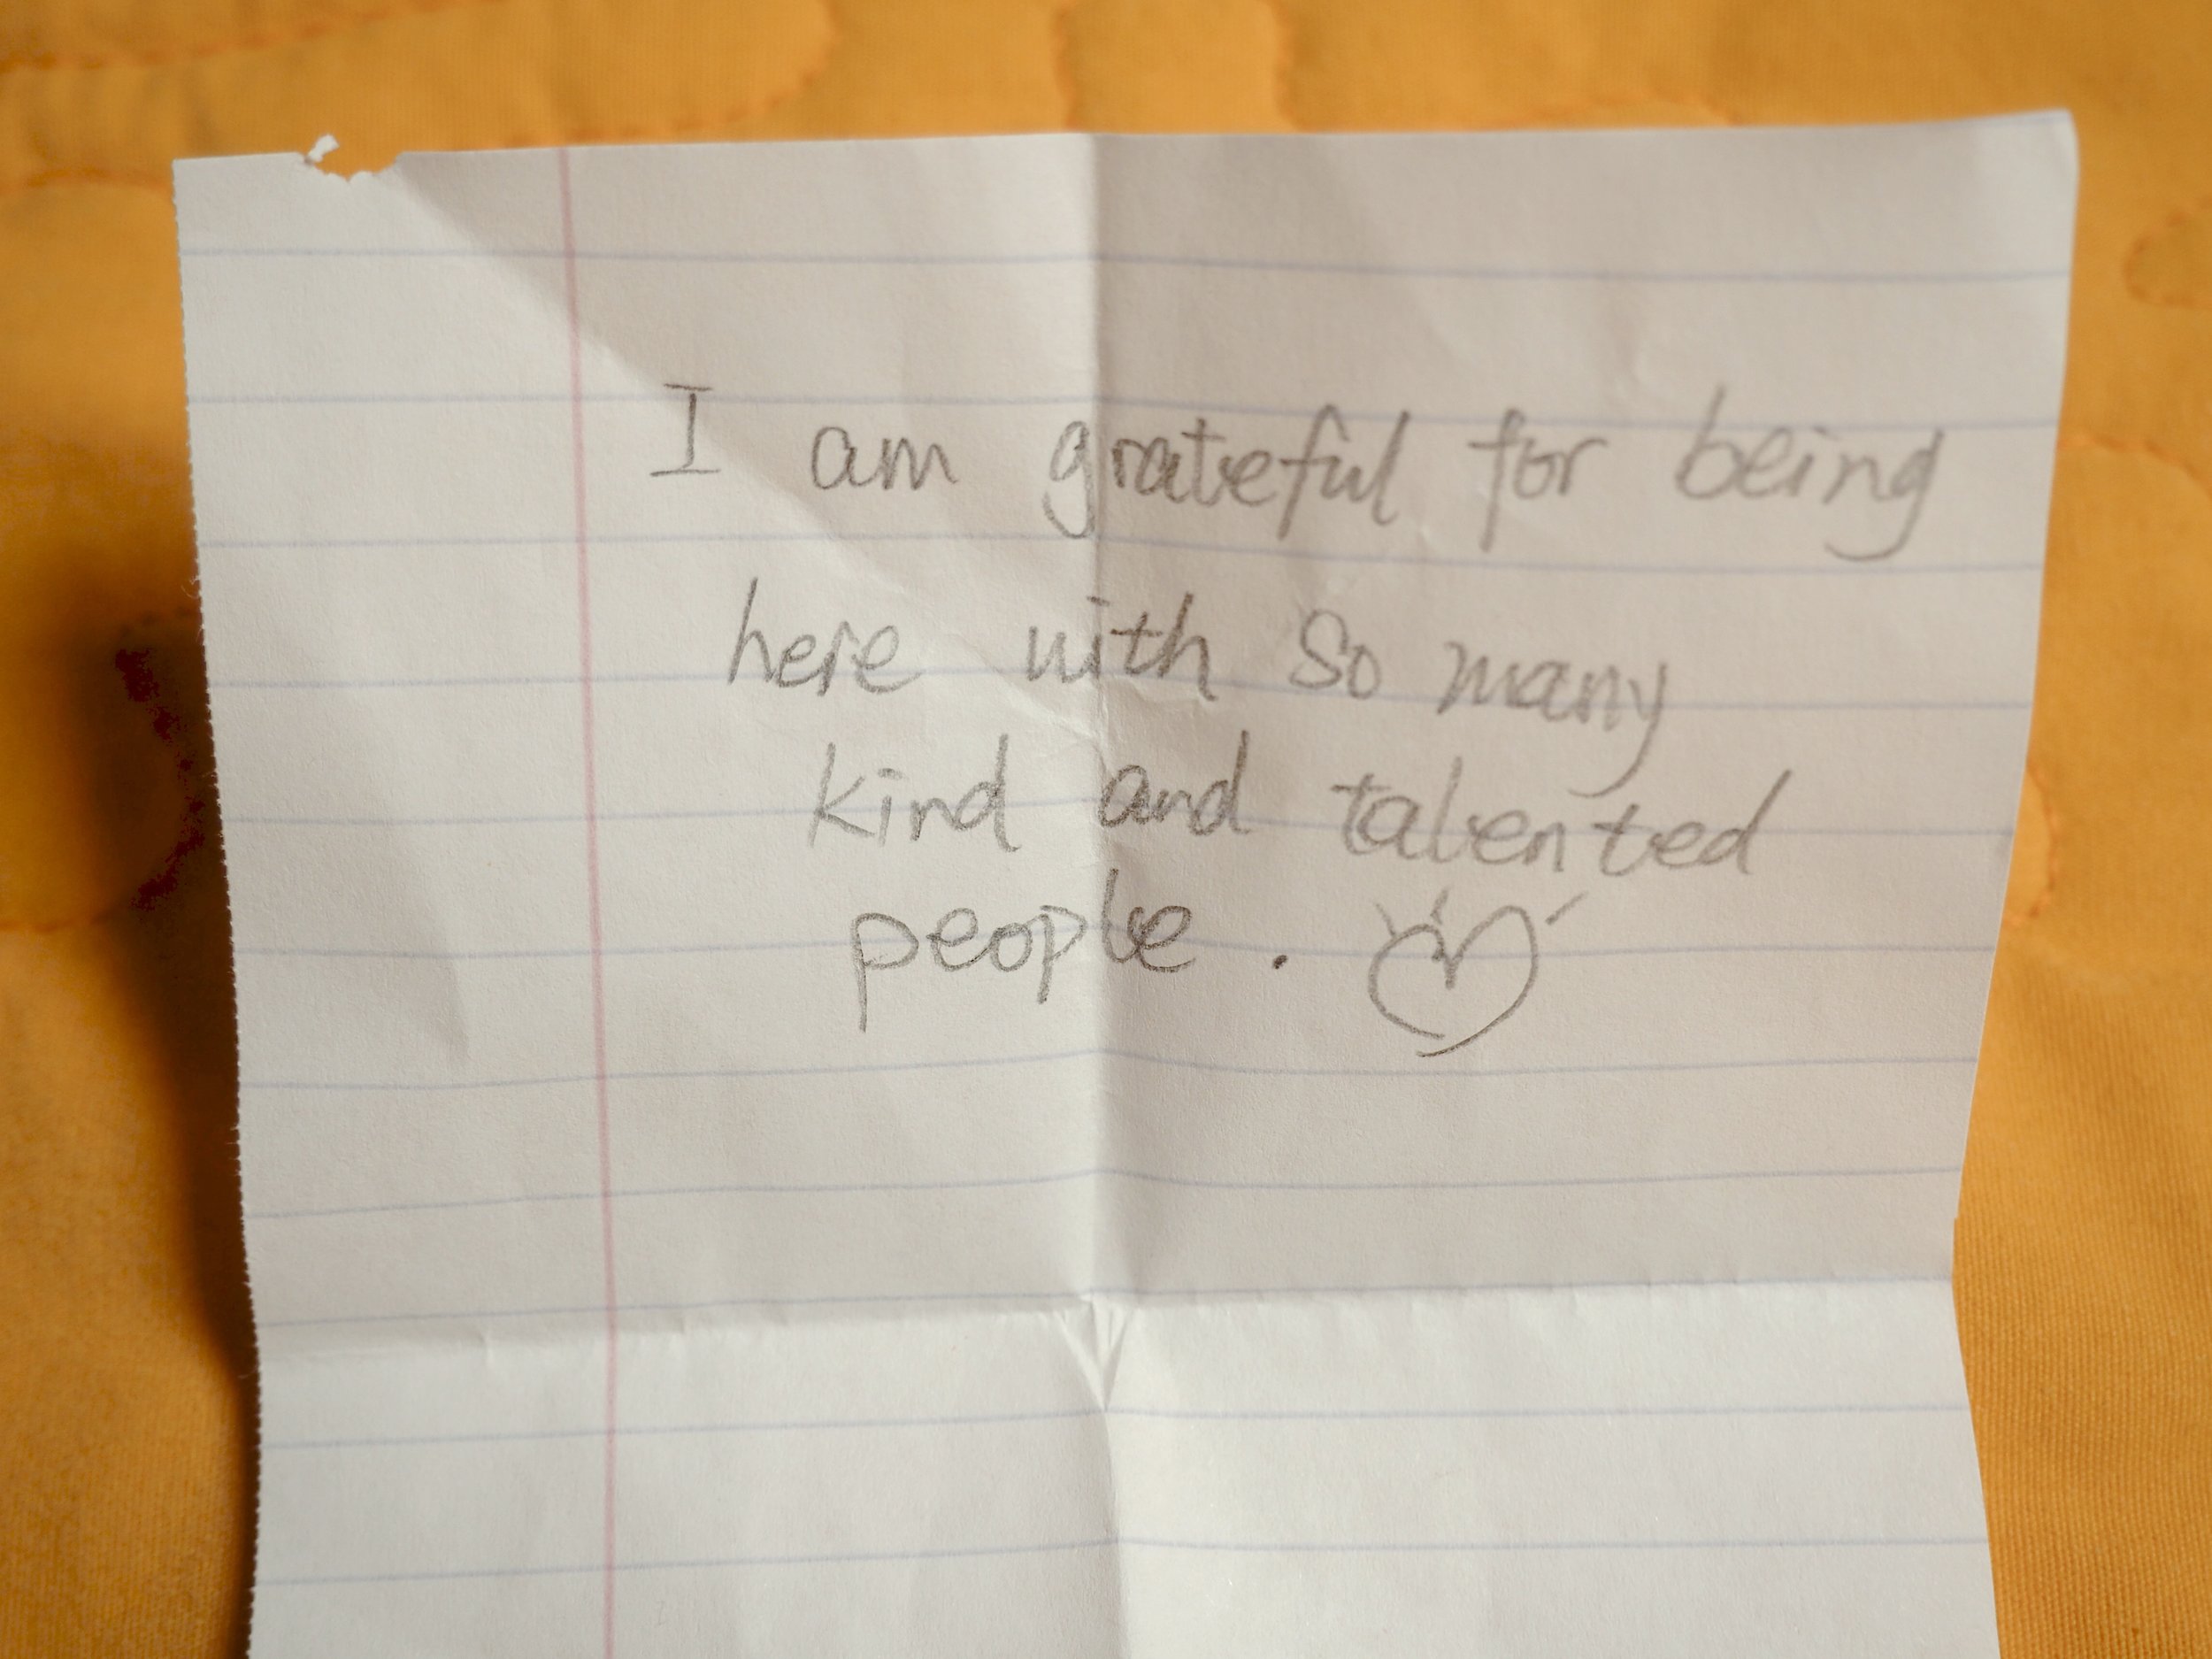 I am grateful for being
here with so many
kind and talented
people.